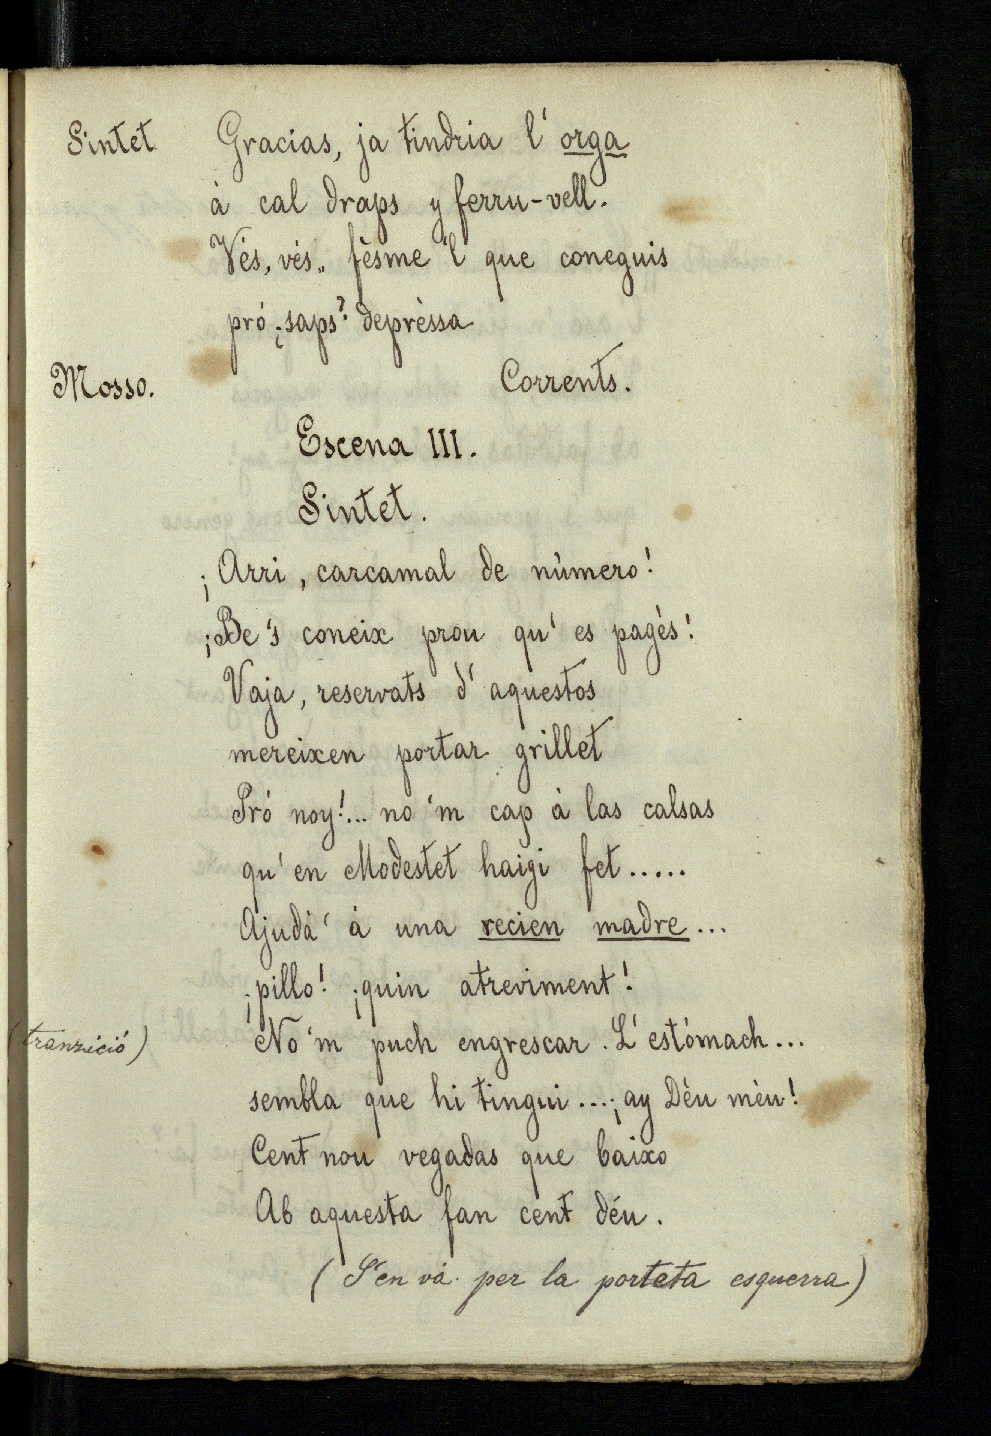 Sintet Gracias, ja tindria l' orga
à cal draps y ferru-vell.
Vés, vés.. fèsme 'l que coneguis
pró ¿saps? depréssa
Mosso. Corrents.
Escena III.
Sintet.
¡Arri, carcamal de número!
¡Be 's coneix prou qu' es pagès!
Vaja, reservats d' aquestos
mereixen portar grillet
Pró noy!... no 'm cap à las calsas
qu' en Modestet haigi fet.....
Ajudà' à una recien madre...
¡pillo! ¡quin atreviment!
(tranzició) No 'm puch engrescar. L' estómach...
sembla que hi tingui...¡ay Dèu mèu!
Cent nou vegadas que baixo
Ab aquesta fan cent déu.
(S'en và per la porteta esquerra)